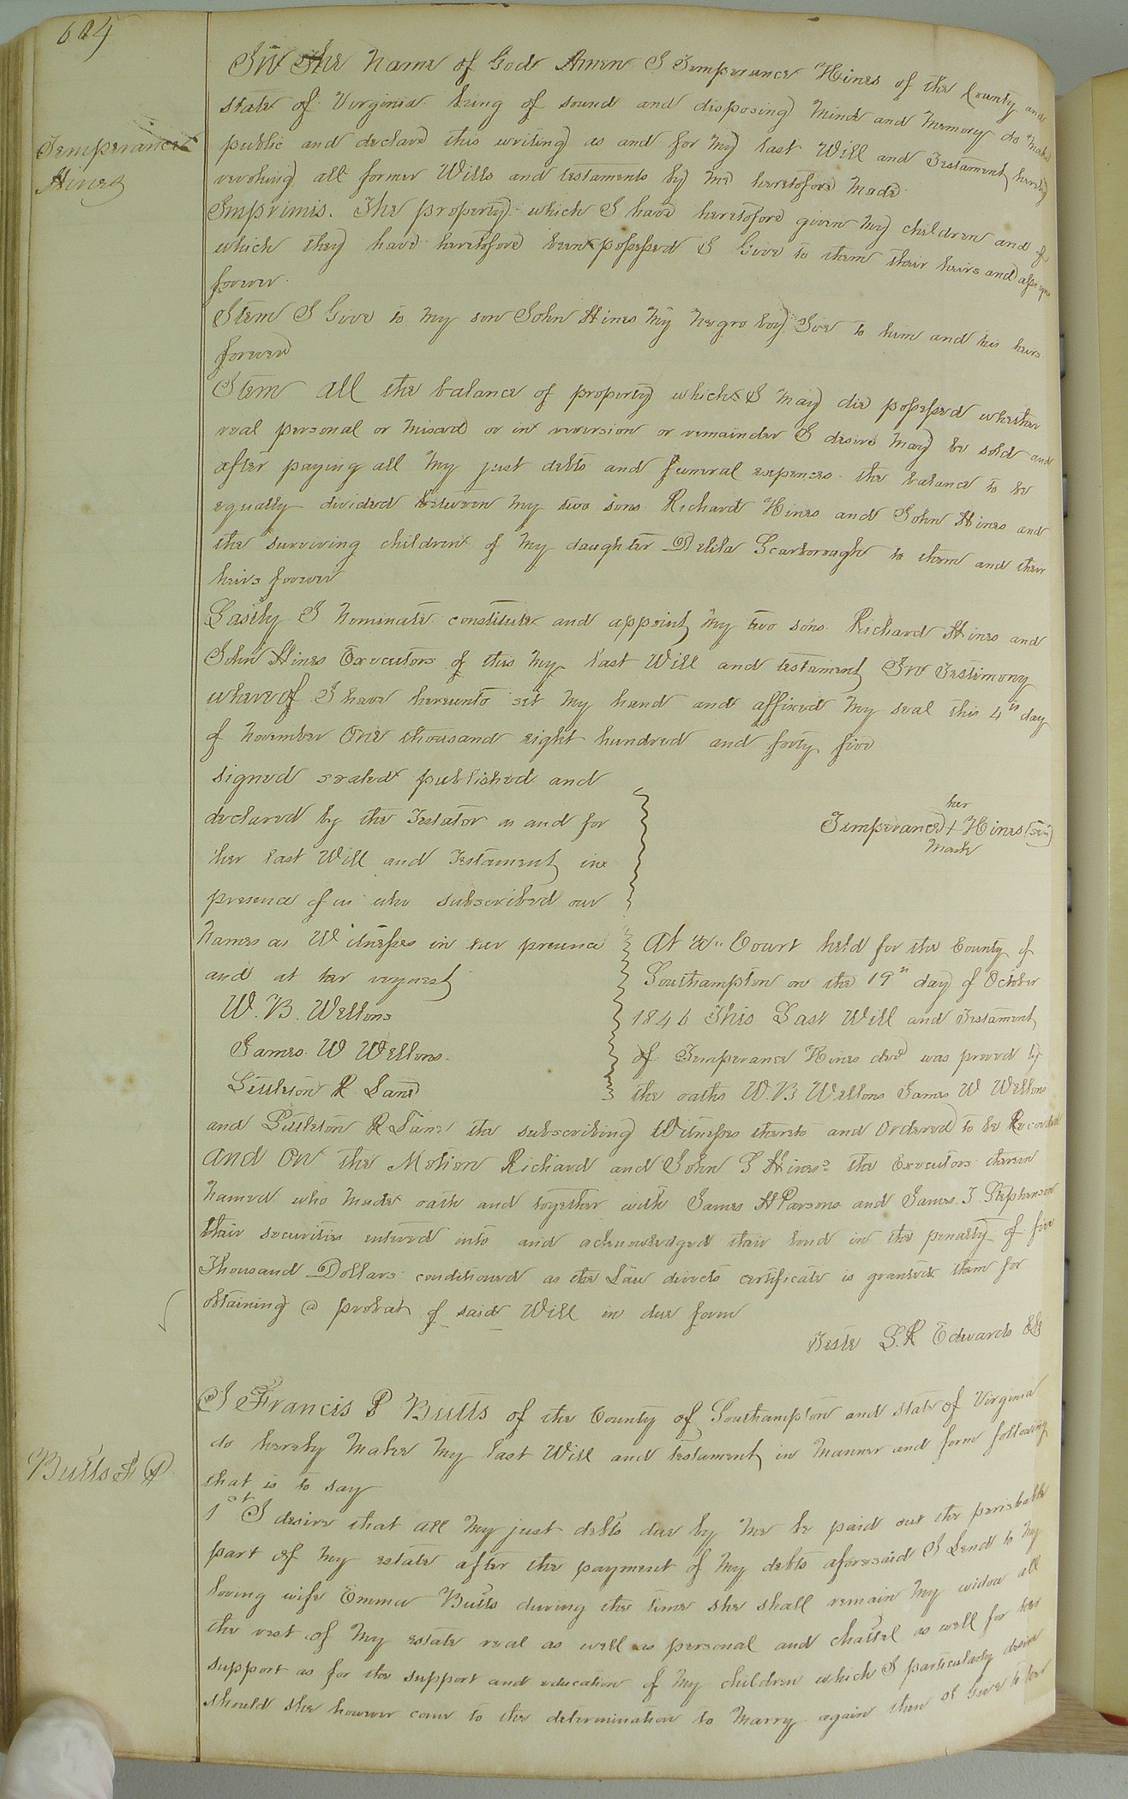 604
Temperance
Hines
In The Name of God Amen I Temperance Hines of the County and
state of Virginia being of sound and disposing mind and memory do make
public and declare this writing as and for my last Will and Testament hereby
revoking all former Wills and testaments by me heretofore made.
Imprimis. The property which I have heretofore given my children and of
which they have heretofore been possessed I Give to them their heirs and assigns
forever.
Item I Give to my son John Hines my negro boy to him and his heirs
forever
Item All the balance of property which I may die possessed whether
real personal or mixed or in reversion or remainder I desire may be sold and
after paying all my just debts and funeral expences the balance to be
equally divided between my two sons Richard Hines and John Hines and
the surviving children of my daughter Delila Scarborough to them and their
heirs forever
Lastly I nominate constitute and appoint my two sons Richard Hines and
John Hines Executors of this my last Will and testament In Testimony
whereof I have hereunto set my hand and affixed my seal this 4th day
of November One thousand eight hundred and forty five
signed sealed published and
declared by the Testator as and for
her last Will and Testament in
presence of us who subscribed our
names as Witnesses in her presence
and at her request
W. B. Wellons
James W Wellons.
Littleton R Lane
her
Temperance + Hines (Seal)
mark
At a Court held for the County of
Southampton on the 19th day of October
1846 This Last Will and Testament
of Temperance Hines decd was proved by
the oaths W. B Wellons James W Wellons
and Littleton R Lane the subscribing Witnesses thereto and Ordered to be Recorded
And On the Motion Richard and John S Hines the Executors therein
named who made oath and together with James H Parsons and James J Stephenson
their securities entered into and acknowledged their bond in the penalty of five
Thousand Dollars conditioned as the Law directs certificate is granted them for
obtaining a probat of said Will in due form
Teste L. R Edwards Clk
Butts F P
I Francis P Butts of the County of Southampton and state of Virginia
do hereby make my last Will and testament in manner and form following
that is to say
1st I desire that all my just debts due by me be paid out the perishable
part of my estate after the payment of my debts aforesaid I Lend to my
loving wife Emma Butts during the time she shall remain my widow all
the rest of my estate real as well as personal and chattel as well for her
support as for the support and education of my children which I particularly desire
should she however come to the determination to marry again then I Give to her